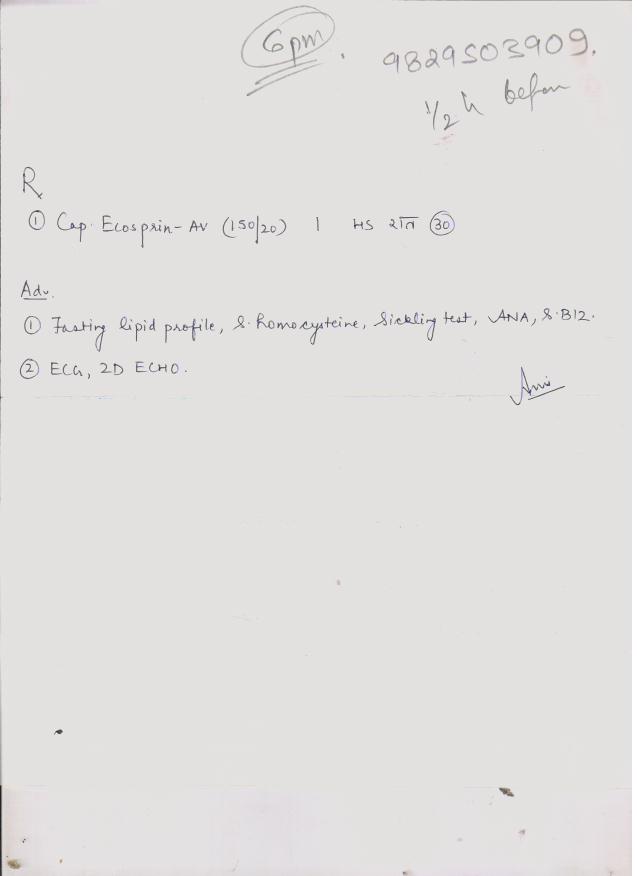 6pm.
9829503909.
1/2 h before
Rx
① Cap. Ecosprin-AV (150/20) 1 HS रात ㉚
Adv.
① Fasting lipid profile, S. homocysteine, Sickling test, ANA, S. B12.
② ECG, 2D ECHO.